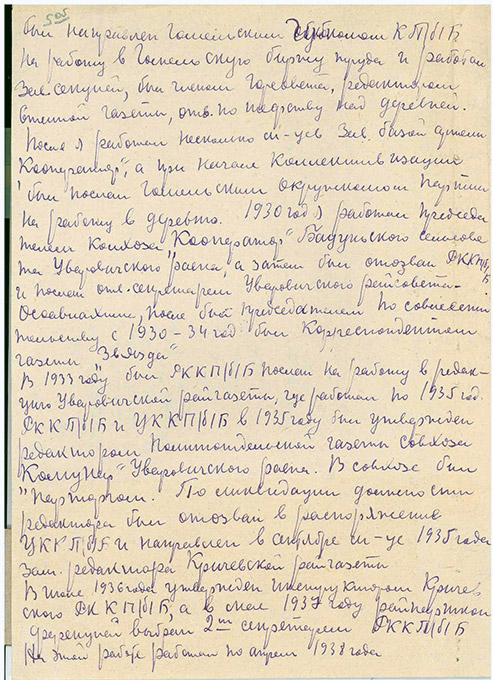 505
был направлен Гомельским Губкомом КП/б/Б
на работу в Гомельскую биржу труда и работал
Зав секцией, был членом Горсовета, редактором
стенной газеты, отв. по шефству над деревней.
После я работал несколько м-цев Зав. базой артели
"Кооператор", а при начале Коллективизации
был послан Гомельским Окружкомом партии
на работу в деревню. 1930 год я работал председа
телем Колхоза "Кооператор" сельсове
та Уваровичского раена, а затем был отозван РККП/б/Б
и послан отв. секретарем Уваровичского райсовета-
Осоавиахима, после был председателем по совмести
тельству с 1930-34 год был Корреспондентом
газеты "Звязда"
В 1933 году был РККП/б/Б послан на работу в редак-
цию Уваровичской райгазеты, где работал по 1935 год.
РККП/б/Б и ЦККП/б/Б в 1935 году был утвержден
редактором Политотдельской газеты совхоза
"Комунар" Уваровичского раена. В совхозе был
парторгом. По ликвидации должности
редактора был отозван в распоряжение
ЦККП/б/Б и направлен в сентябре м-це 1935 года
зам. редактора Кричевской райгазеты
В июле 1936 года утвержден инструктором Кричев
ского РККП/б/Б, а в мае 1937 году райпарткон
ференцией выбран 2м секретарем РККП/б/Б
На этой работе работал по апрель 1938 года